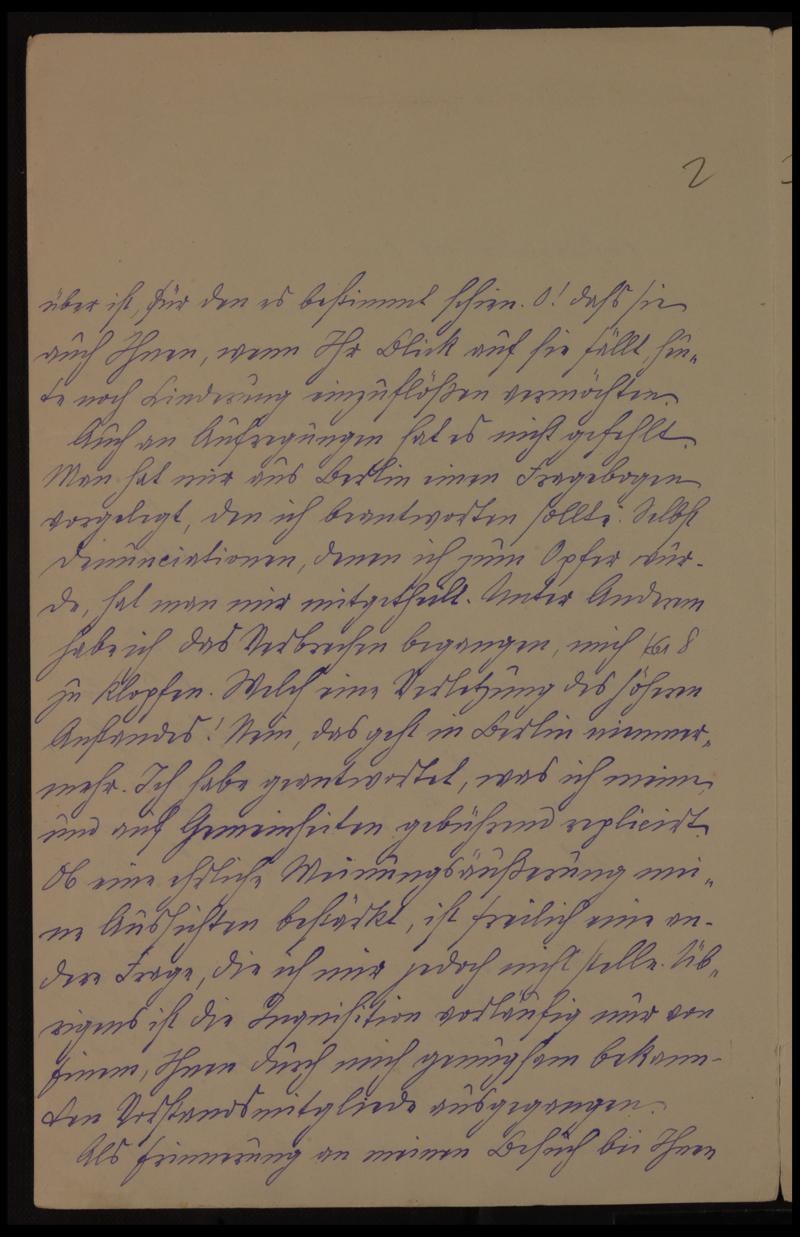 2
über ist, für den es bestimmt schien. O! dass sie
auch Ihnen, wenn Ihr Blick auf sie fällt, heu„
te noch Linderung einzuflößen vermöchten.
Auch an Aufregungen hat es nicht gefehlt.
Man hat mir aus Berlin einen Fragebogen
vorgelegt, den ich beantworten sollte. Selbst
Denunciationen, denen ich zum Opfer wur-
de, hat man mir mitgetheilt. Unter Anderem
habe ich das Verbrechen begangen, mich
zu klopfen. Welch eine Verletzung des höheren
Anstandes! Nein, das geht in Berlin nimmer„
mehr. Ich habe geantwortet, was ich meine,
und auf Gemeinheiten gebührend replicirt.
Ob eine ehrliche Meinungsäußerung mei„
ne Aussichten bestärkt, ist freilich eine an-
dere Frage, die ich mir jedoch nicht stelle. Üb„
rigens ist die Inquisition vorläufig nur von
Einem, Ihnen durch mich genugsam bekann-
ten Vorstandsmitgliede ausgegangen.
Als Erinnerung an meinen Besuch bei Ihnen